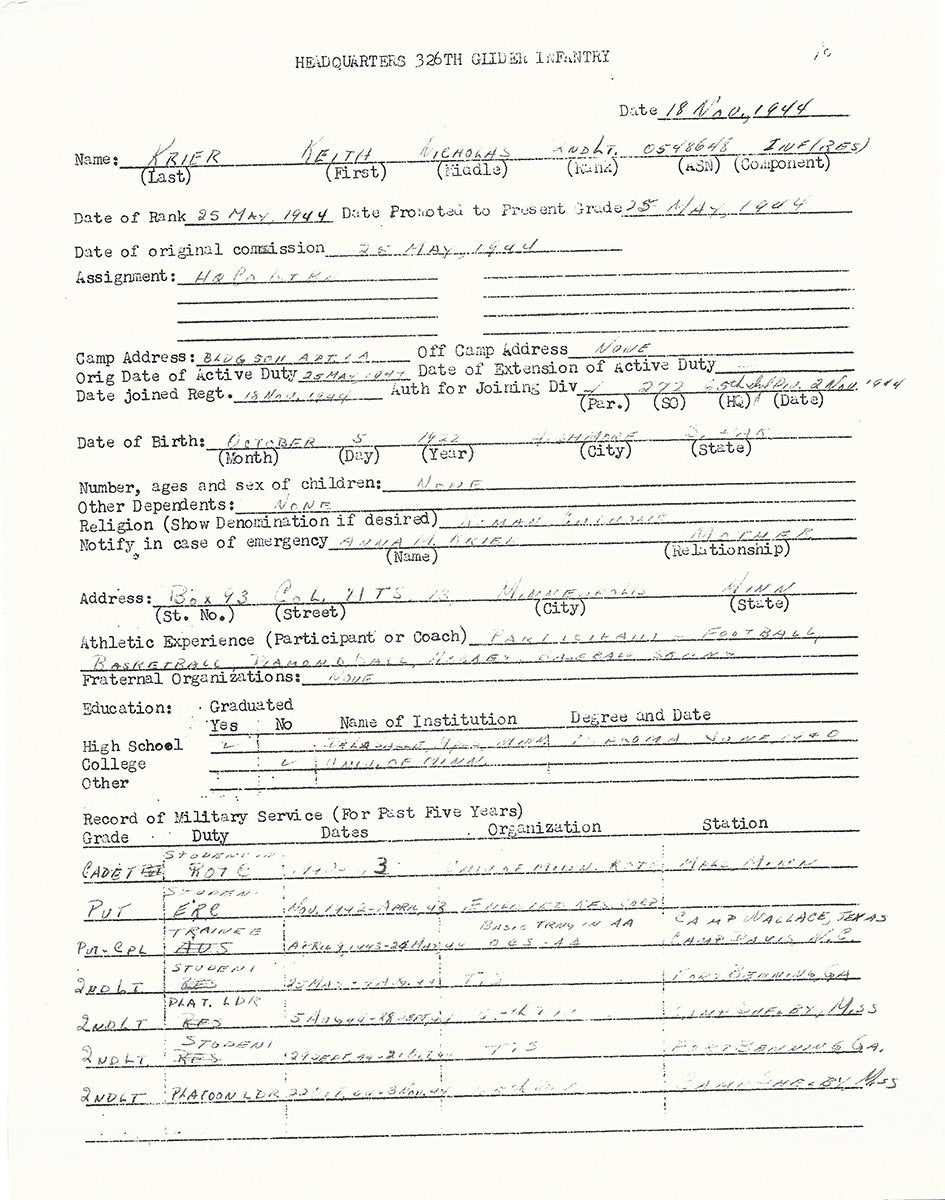 HEADQUARTERS 326TH GLIDER INFANTRY
Date 18 Nov, 1944
Name: KRIER KEITH NICHOLAS 2NDLT. 0548648 INF(RES)
(Last) (First) (Middle) (Rank) (ASN) (Component)
Date of Rank 25 MAY, 1944 Date Promoted to Present Grade 25 MAY, 1944
Date of original commission 25 MAY, 1944
Assignment: HQ Co
Camp Address: BLDG 5011 APT 1A Off Camp Address NONE
Orig Date of Active Duty 25 MAY, 1944 Date of Extension of Active Duty
Date joined Regt. 18 NOV. 1944 Auth for Joining Div 1 272 2 NOV. 1944
(Par.) (SO) (HQ) (Date)
Date of Birth: OCTOBER 5 1922
(Month) (Day) (Year) (City) (State)
Number, ages and sex of children: NONE
Other Dependents: NONE
Religion (Show Denomination if desired) ROMAN CATHOLIC
Notify in case of emergency ANNA M. KRIER MOTHER
(Name) (Relationship)
Address: Box 93 COL. HTS. MINNEAPOLIS MINN
(St. No.) (Street) (City) (State)
Athletic Experience (Participant or Coach) PARTICIPANT - FOOTBALL,
BASKETBALL, DIAMONDBALL, HOCKEY, BASEBALL
Fraternal Organizations: NONE
Education: Graduated
Yes No Name of Institution Degree and Date
High School DELASALLE, MPLS MINN DIPLOMA JUNE, 1940
College UNIV. OF MINN
Other
Record of Military Service (For Past Five Years)
Grade Duty Dates Organization Station
STUDENT IN
CADET ROTC 3 UNIV OF MINN. ROTC MPLS MINN
STUDENT
PVT ERC NOV. 1942-APRIL 43 ENLISTED RES CORP
TRAINEE BASIC TRNG IN AA CAMP WALLACE, TEXAS
PVT-CPL AUS APRIL 9, 1943-25 MAY 44 OCS-AA CAMP DAVIS N.C.
STUDENT
2NDLT RES 25 MAY T.S FORT BENNING GA
PLAT. LDR
2NDLT RES 5 AUG 44-28 SEPT CAMP SHELBY, MISS
STUDENT
2NDLT RES 29 SEPT 44 T.S FORT BENNING GA.
2NDLT PLATOON LDR CAMP SHELBY MISS